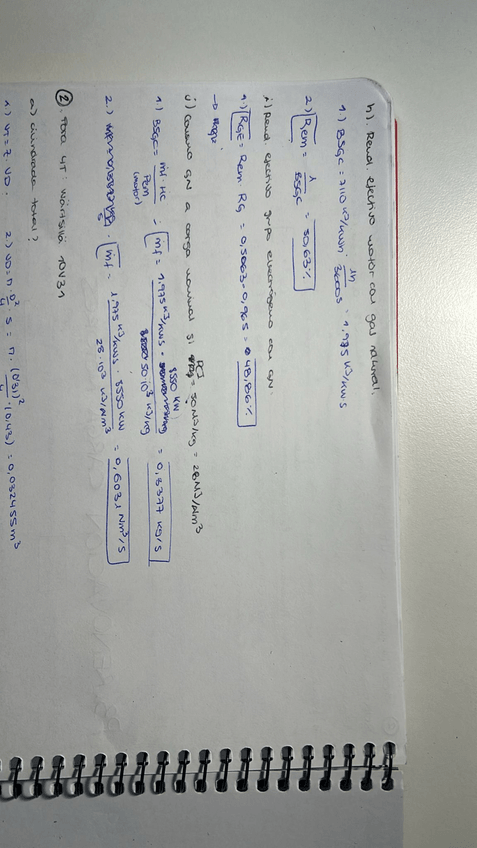 h) Rend. efectivo motor con gas natural.
1.) BSGC = 7110 kJ/kWh · 1h/3600s = 1,975 kJ/kWs
2) Rem = 1/BSGC = 50,63%
i) Rend. efectivo grupo electrógeno con GN.
1) RGE = Rem · RG = 0,5063 · 0,965 = 48,86%
j) Consumo GN a carga nominal si PCI = 50 MJ/kg = 28 MJ/Nm³
1) BSGC = ṁf · Hc / Pem (motor) = ṁf = 1,975 kJ/kWs · 8550 kW / 50·10³ kJ/kg = 0,3377 kg/s
2.) ṁf = 1,975 kJ/kWs · 8550 kW / 28·10³ kJ/Nm³ = 0,6031 Nm³/s
② Wärtsilä 10V31
a) cilindrada total?
1) VT = z · VD. 2) VD = π · D²/4 · S = π · (0,31)²/4 · (0,43) = 0,032455 m³